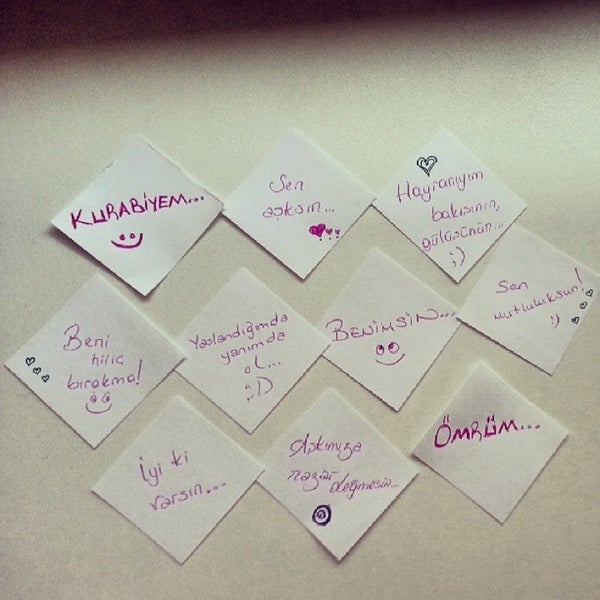 KURABİYEM...
Sen
aşksın...
Hayranıyım
bakışının,
gülüşünün...
;)
Beni
hiiiç
bırakma!
Yaşlandığımda
yanımda
oL...
;D
BENİMSİN...
Sen
mutluluksun!
:)
İyi ki
varsın...
Aşkımıza
nazar
değmesin...
ÖMRÜM...